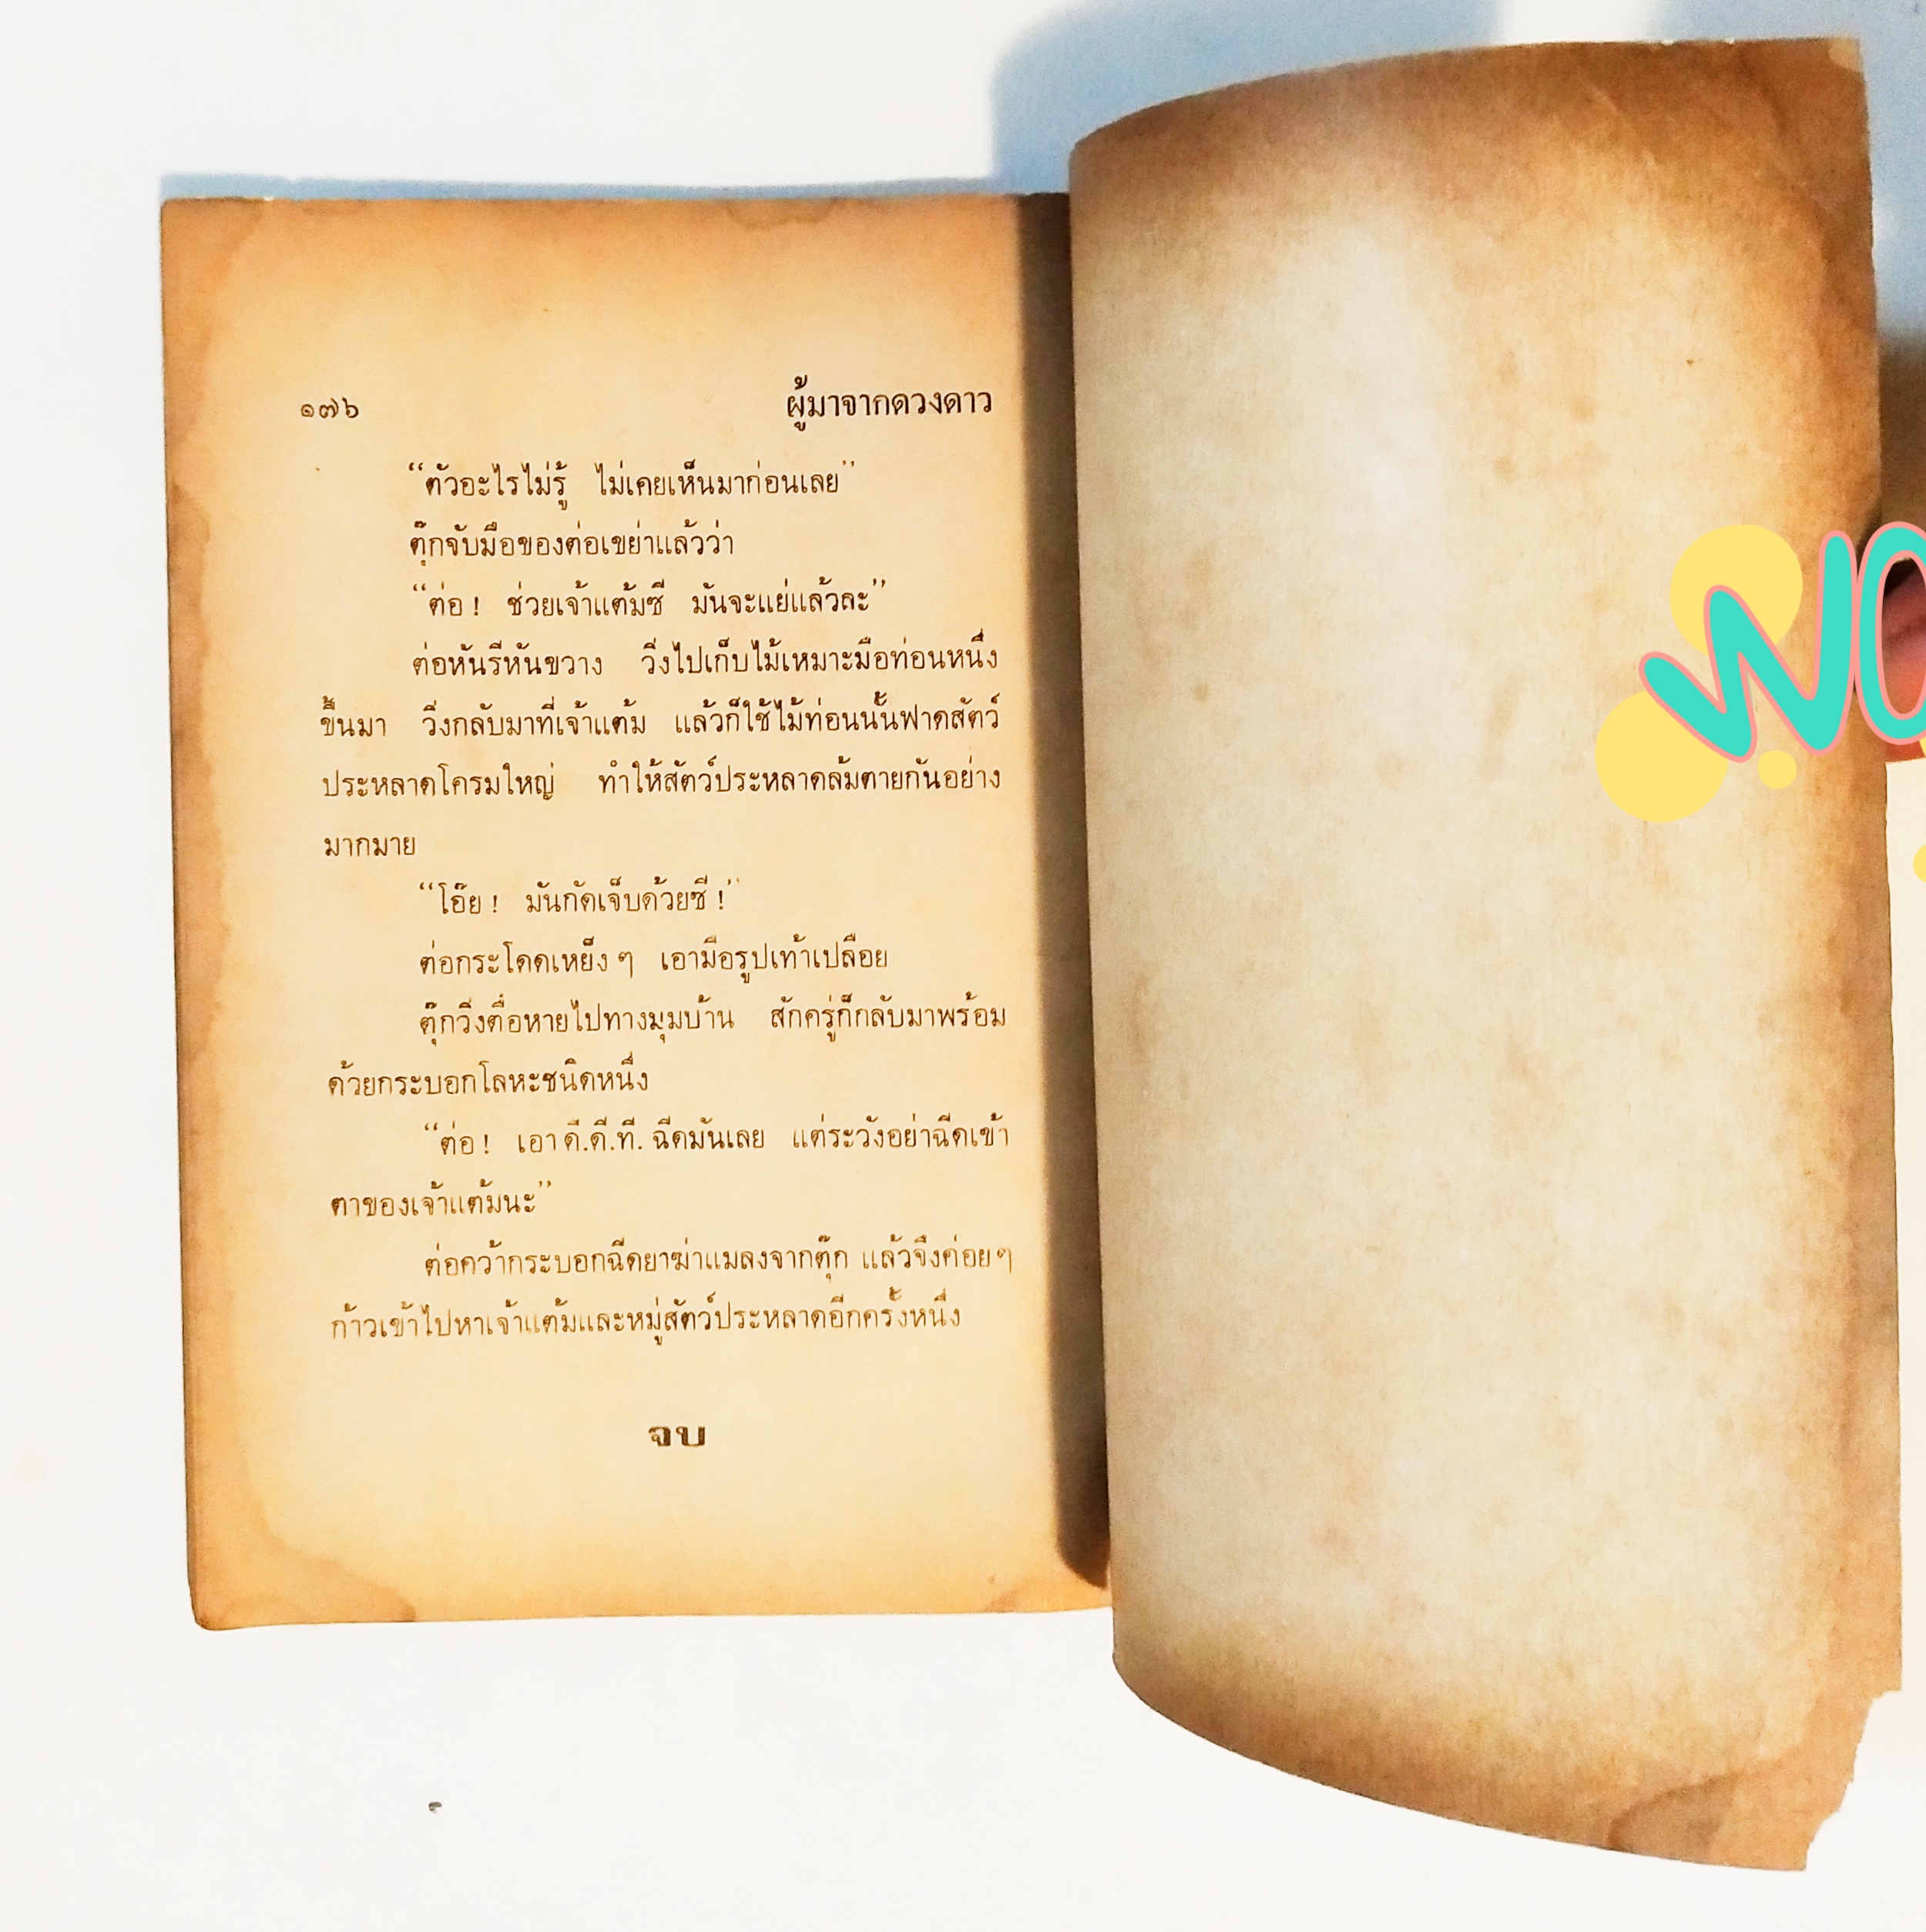 ๑๗๖ ผู้มาจากดวงดาว
“ตัวอะไรไม่รู้ ไม่เคยเห็นมาก่อนเลย”
ตุ๊กจับมือของต่อเขย่าแล้วว่า
“ต่อ ! ช่วยเจ้าแต้มซี มันจะแย่แล้วละ”
ต่อหันรีหันขวาง วิ่งไปเก็บไม้เหมาะมือท่อนหนึ่ง
ขึ้นมา วิ่งกลับมาที่เจ้าแต้ม แล้วก็ใช้ไม้ท่อนนั้นฟาดสัตว์
ประหลาดโครมใหญ่ ทำให้สัตว์ประหลาดล้มตายกันอย่าง
มากมาย
“โอ๊ย ! มันกัดเจ็บด้วยซี !”
ต่อกระโดดเหย็ง ๆ เอามือรูปเท้าเปลือย
ตุ๊กวิ่งตื๋อหายไปทางมุมบ้าน สักครู่ก็กลับมาพร้อม
ด้วยกระบอกโลหะชนิดหนึ่ง
“ต่อ ! เอา ดี.ดี.ที. ฉีดมันเลย แต่ระวังอย่าฉีดเข้า
ตาของเจ้าแต้มนะ”
ต่อคว้ากระบอกฉีดยาฆ่าแมลงจากตุ๊ก แล้วจึงค่อยๆ
ก้าวเข้าไปหาเจ้าแต้มและหมู่สัตว์ประหลาดอีกครั้งหนึ่ง
จบ